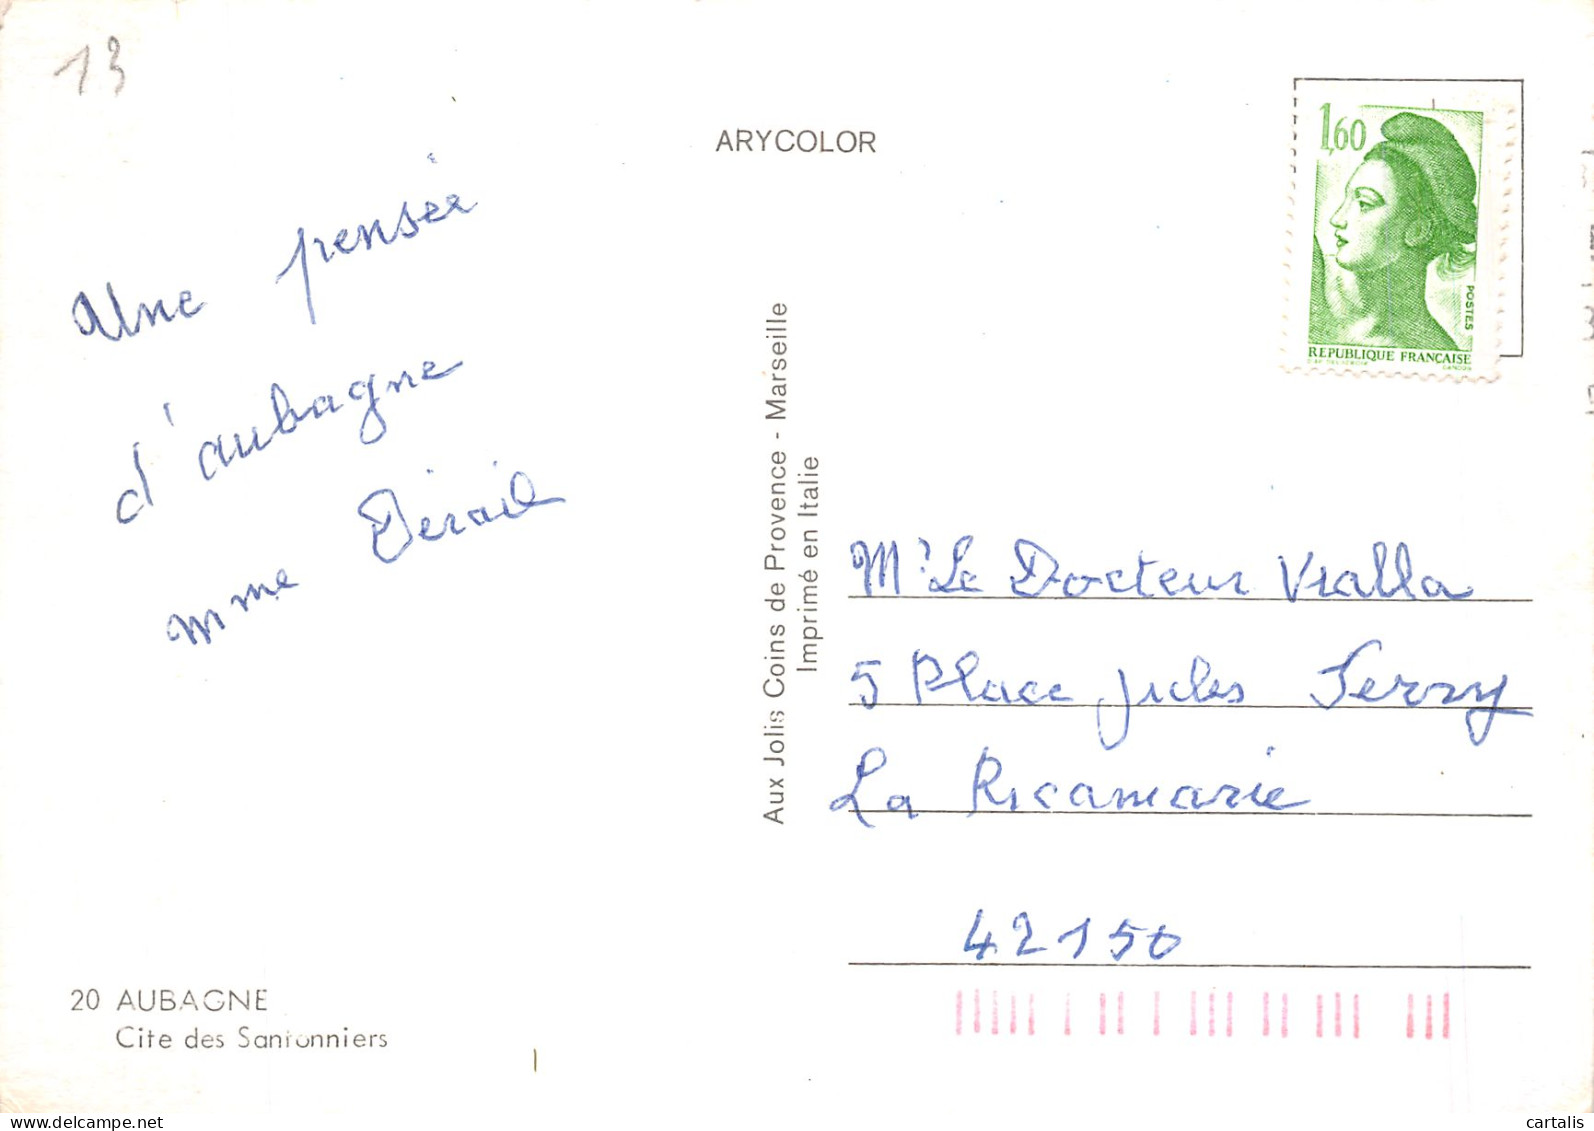 13
ARYCOLOR
1,60
POSTES
REPUBLIQUE FRANÇAISE
Une pensée
d'aubagne
mme Dérail
Aux Jolis Coins de Provence - Marseille
Imprimé en Italie
Mr Le Docteur Vialla
5 Place Jules Ferry
La Ricamarie
42150
20 AUBAGNE
Cite des Santonniers
delcampe.net
cartalis